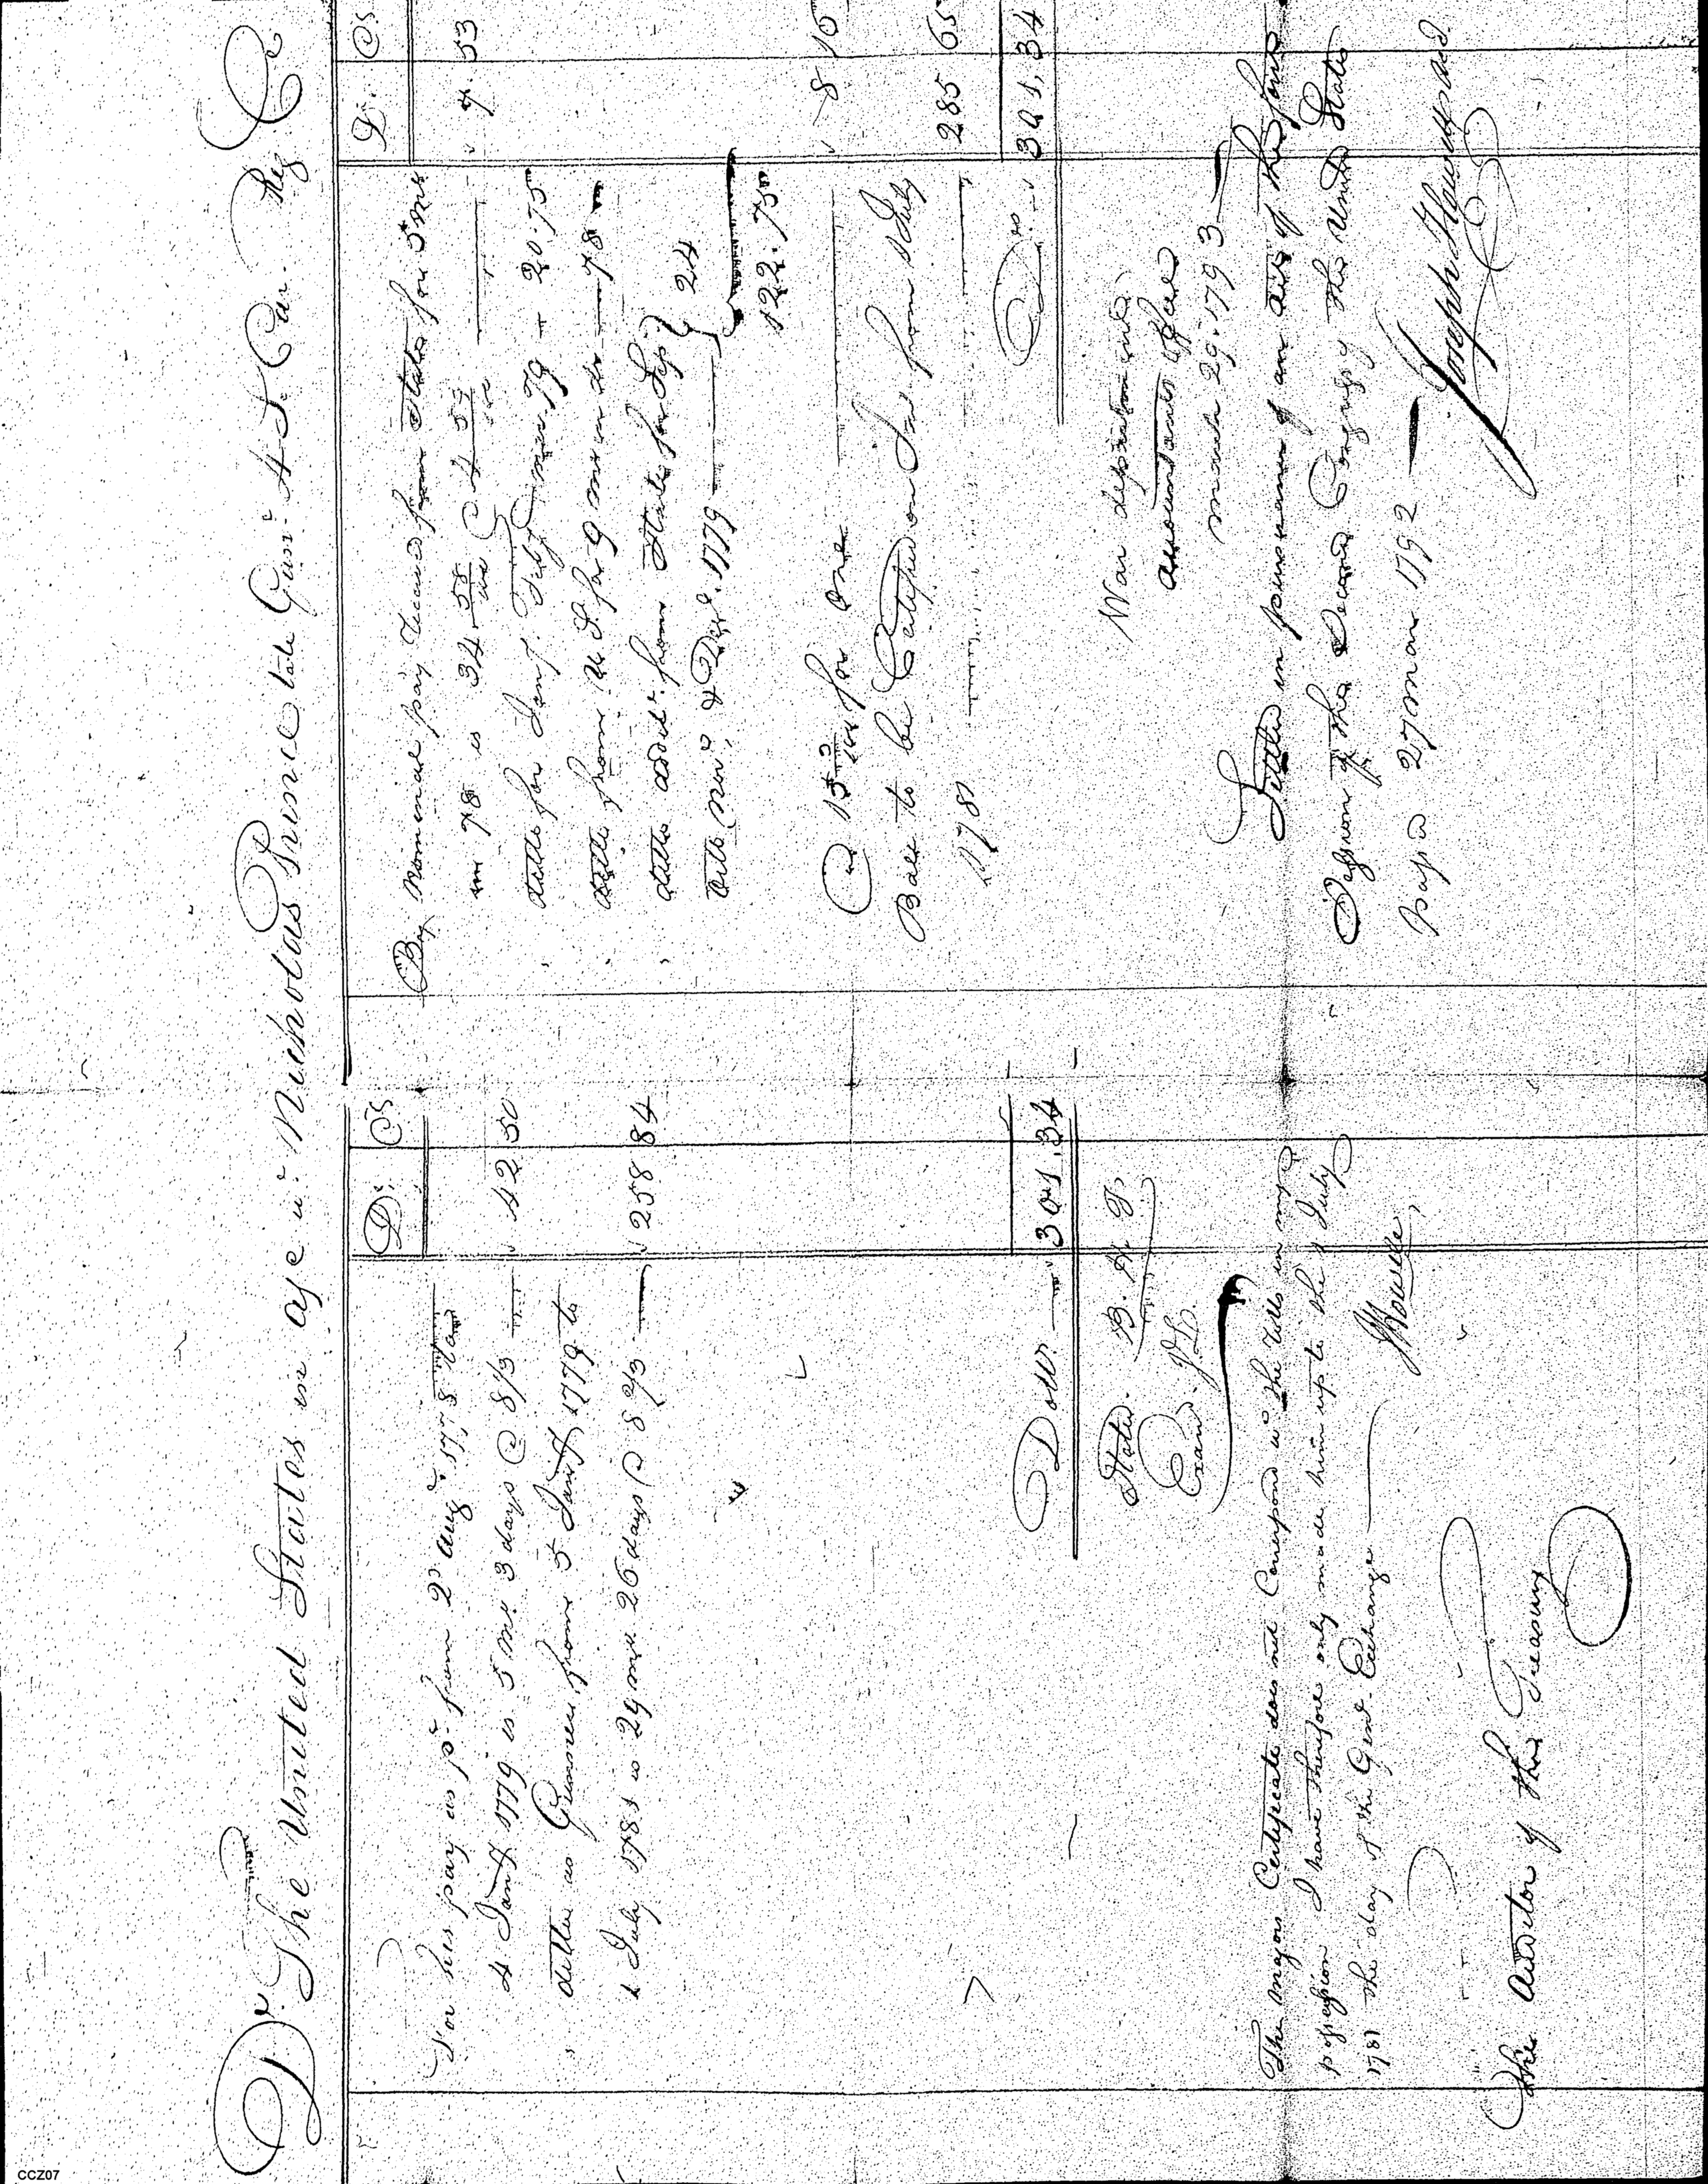 Dr. The United States in a/c wt. Nicholas Prince late Gunr. 4 S. Car. Reg Cr
Ds Cs
For his pay as pt. from 2d Augt. 1778
4 Jany 1779 is 5 mo. 3 days @ 8 1/3 — 42 50
ditto as Gunner from 5 Jany 1779 to
1 July 1781 is 29 mo. 26 days @ 8 2/3 — 258 84
Dollrs — 301.34
Stated. B. H. T.
Examd. J. L.
The majors Certificate does not Correspond wt. the Rolls in my
possession I have therefore only made him up to the 1 July
1781 the day of the Genl. Exchange —
J Howell,
The Auditor of the Treasury
Ds. Cs
By nominal pay received from State for 5 mos
in 78 is 34 55/100 @ 4 57/100 — 7.53
ditto for Jany. Feby & mar 79 — 20.75
ditto from U S. for 9 mos in do — 78 —
ditto addit. from State for Sep
Octo Novr. & Decr. 1779 — } 24
122.75
@ 15 3/100 for one — 8 16
Bale to be Certified on Int. from 1 July
1781 — 285 65
Drs — 301.34
War department
Accountants Office
March 29. 1793 —
Settled in pursuance of an act of the first
Session of the Second Congress of the United States
passed 27 March 1792 —
Joseph Howell